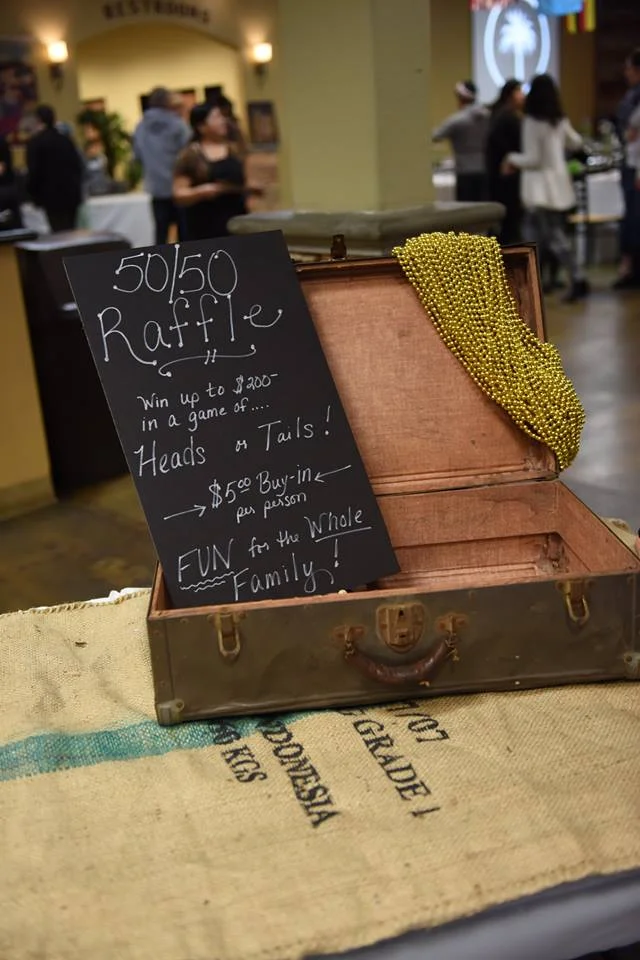 RESTROOMS
50/50
Raffle
Win up to $200-
in a game of....
Heads or Tails!
$5.00 Buy-in
per person
FUN for the Whole
Family!
/07
GRADE 1
INDONESIA
KGS